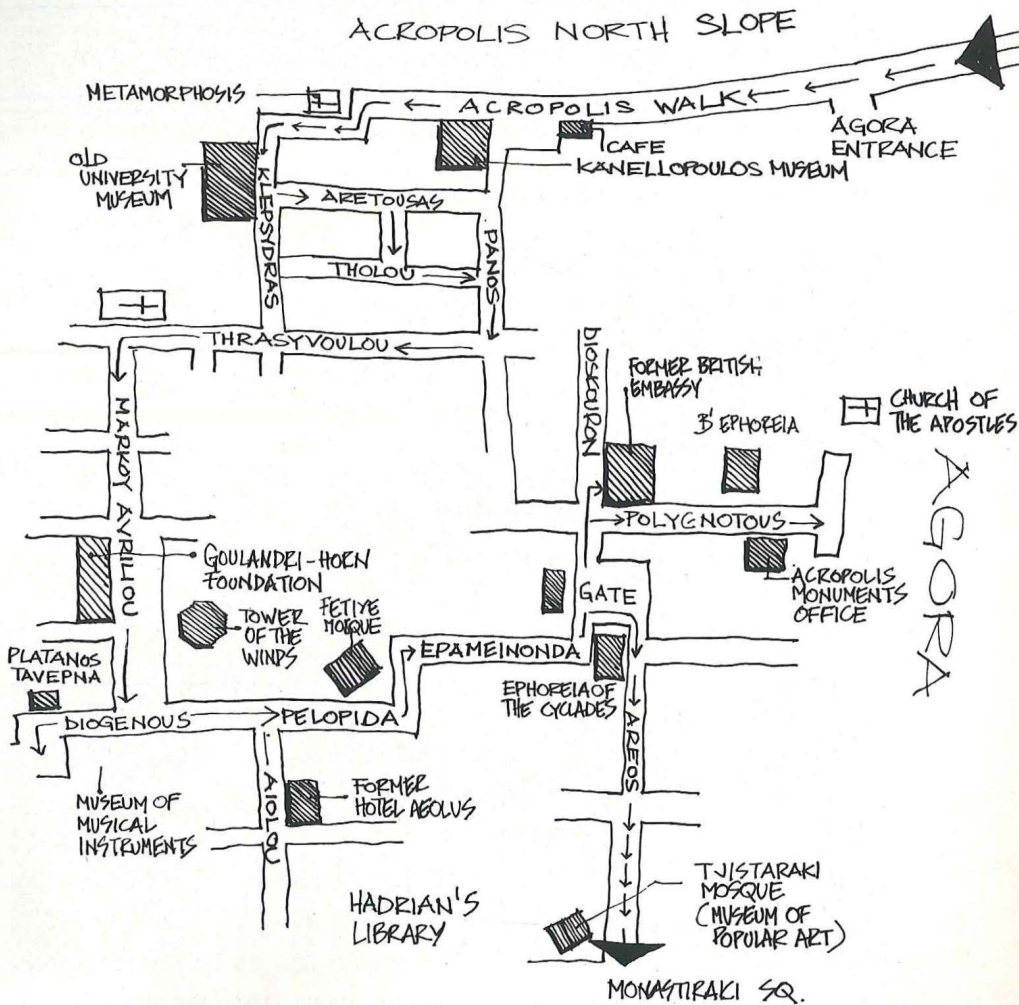 ACROPOLIS NORTH SLOPE
METAMORPHOSIS
ACROPOLIS WALK
AGORA
ENTRANCE
CAFE
KANELLOPOULOS MUSEUM
OLD
UNIVERSITY
MUSEUM
KLEPSYDRAS
ARETOUSAS
PANOS
THOLOU
THRASYVOULOU
DIOSKOURON
FORMER BRITISH
EMBASSY
B' EPHOREIA
CHURCH OF
THE APOSTLES
MARKOY AVRILIOU
POLYGNOTOUS
AGORA
GOULANDRI-HORN
FOUNDATION
ACROPOLIS
MONUMENTS
OFFICE
GATE
TOWER
OF THE
WINDS
FETIYE
MOSQUE
EPAMEINONDA
PLATANOS
TAVEPNA
EPHOREIA OF
THE CYCLADES
DIOGENOUS
PELOPIDA
AREOS
AIOLOU
FORMER
HOTEL AEOLUS
MUSEUM OF
MUSICAL
INSTRUMENTS
HADRIAN'S
LIBRARY
TJISTARAKI
MOSQUE
(MUSEUM OF
POPULAR ART)
MONASTIRAKI SQ.